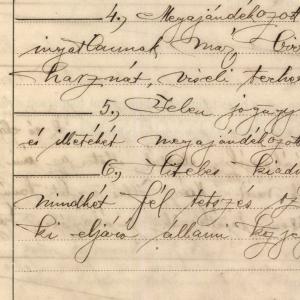 4., Megajándékozott
ingatlannak már bir
hasznát, viseli terhe
5., Jelen jogügy
és illetékét megajándékozott
6., Hiteles kiadm
mindkét fél tetszés sz
ki eljáró állami közje